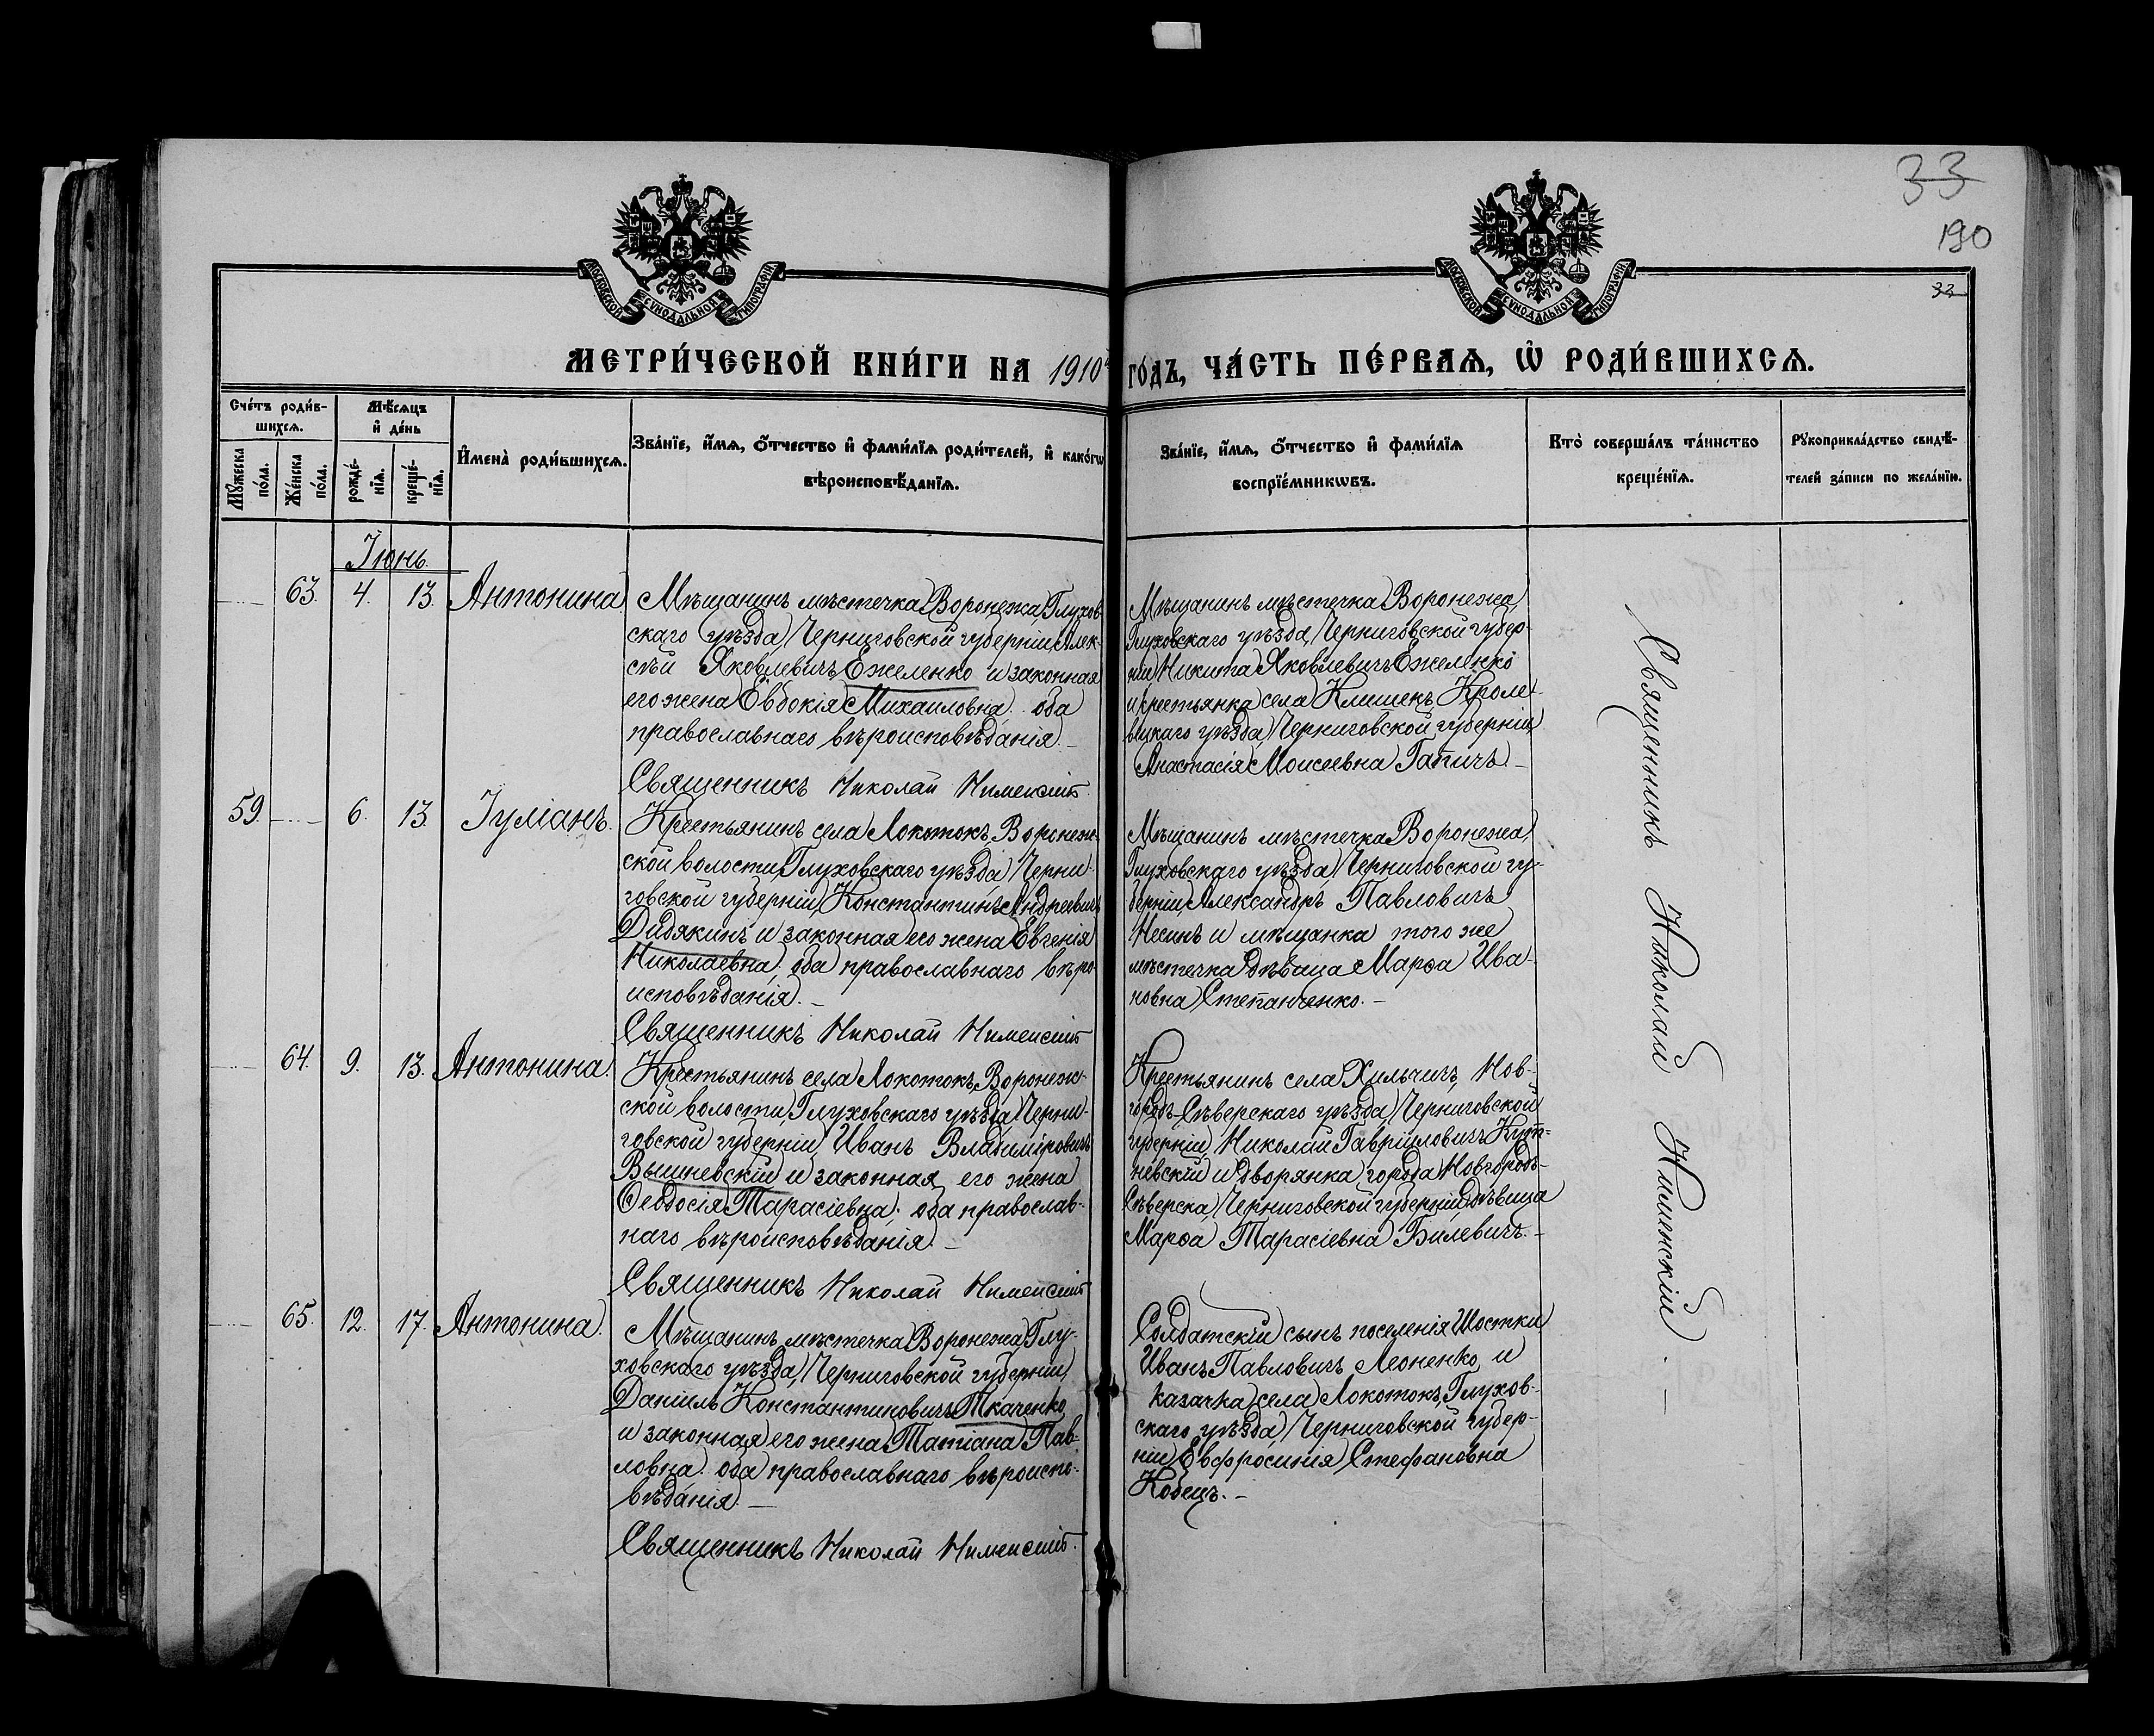 33
190
33
МОСКОВСКОЙ СѴНОДАЛЬНОЙ ТИПОГРАФІИ
МОСКОВСКОЙ СѴНОДАЛЬНОЙ ТИПОГРАФІИ
МЕТРИ́ЧЕСКОЙ КНИ́ГИ НА 1910й ГО́ДЪ, ЧА́СТЬ ПЕ́РВАѦ, Ѡ҆ РОДИ́ВШИХСѦ.
Сче́тъ роди́в-
шихсѧ.
Мѣ́сѧцъ
и҆ де́нь
Мꙋ́жеска по́ла.
Же́нска по́ла.
рожде́-
нїѧ.
креще́-
нїѧ.
И҆мена̀ роди́вшихсѧ.
Зва́нїе, и҆́мѧ, ѻ҆́тчество и҆ фами́лїѧ роди́телей, и҆ како́гѡ
вѣроисповѣ́данїѧ.
Зва́нїе, и҆́мѧ, ѻ҆́тчество и҆ фами́лїѧ
воспрїе́мникѡвъ.
Кто̀ соверша́лъ та́инство
креще́нїѧ.
Рꙋкоприкла́дство свидѣ́-
телей за́писи по жела́нїю.
Іюнь.
63. 4. 13. Антонина
Мѣщанинъ мѣстечка Воронежа, Глухов-
скаго уѣзда, Черниговской губерніи, Алек-
сѣй Яковлевичъ Ежеленко и законная
его жена Евдокія Михаиловна; оба
православнаго вѣроисповѣданія.–
Священникъ Николай Нименскій.
Мѣщанинъ мѣстечка Воронежа,
Глуховскаго уѣзда, Черниговской губер-
ніи, Никита Яковлевичъ Ежеленко
и крестьянка села Клишекъ, Кроле-
вецкаго уѣзда, Черниговской губерніи,
Анастасія Моисеевна Гапичъ.–
59 6. 13. Іуліанъ.
Крестьянинъ села Локотокъ, Воронеж-
ской волости, Глуховскаго уѣзда, Черни-
говской губерніи, Константинъ Андреевичъ
Дидякинъ и законная его жена Евгенія
Николаевна; оба православнаго вѣро-
исповѣданія.–
Священникъ Николай Нименскій
Мѣщанинъ мѣстечка Воронежа,
Глуховскаго уѣзда, Черниговской гу-
берніи, Александръ Павловичъ
Несинъ и мѣщанка того же
мѣстечка дѣвица Марѳа Ива-
новна Степанченко.–
64. 9. 13. Антонина.
Крестьянинъ села Локотокъ, Воронеж-
ской волости, Глуховскаго уѣзда, Черни-
говской губерніи, Иванъ Владиміровичъ
Вышневскій и законная его жена
Ѳеодосія Тарасіевна; оба православ-
наго вѣроисповѣданія.–
Священникъ Николай Нименскій
Крестьянинъ села Хильчичъ, Нов-
городъ-Сѣверскаго уѣзда, Черниговской
губерніи, Николай Гавріиловичъ Куп-
невскій и дворянка города Новгородъ-
Сѣверска, Черниговской губерніи, дѣвица
Марѳа Тарасіевна Билевичъ.–
65. 12. 17. Антонина.
Мѣщанинъ мѣстечка Воронежа, Глу-
ховскаго уѣзда, Черниговской губерніи,
Даніилъ Константиновичъ Ткаченко
и законная его жена Татіана Пав-
ловна; оба православнаго вѣроиспо-
вѣданія.–
Священникъ Николай Нименскій.
Солдатскій сынъ поселенія Шостки
Иванъ Павловичъ Леоненко, и
казачка села Локотокъ, Глухов-
скаго уѣзда, Черниговской губер-
ніи, Евфросинія Стефановна
Кобецъ.–
Священникъ Николай Нименскій.–